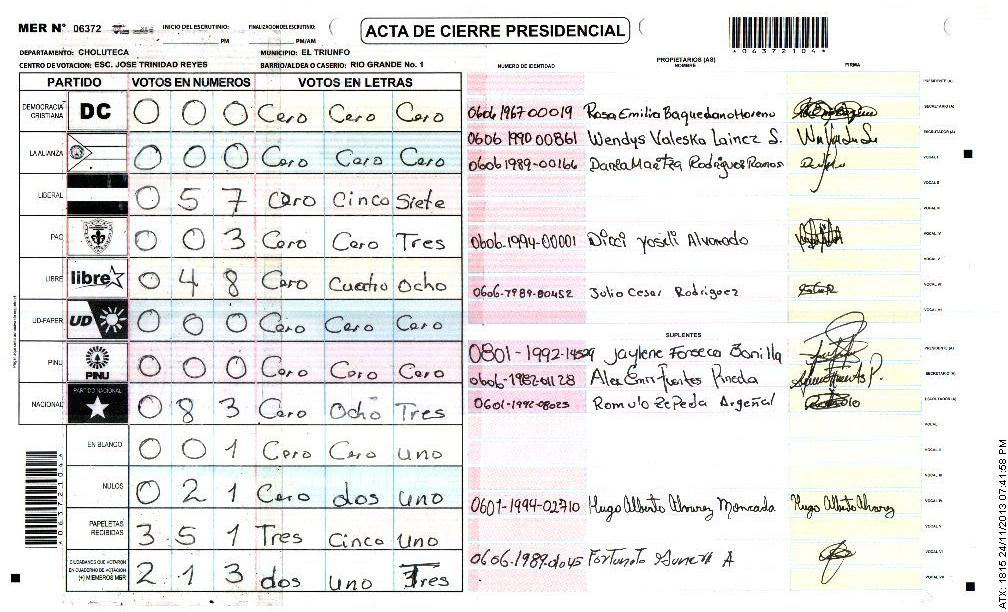 MER N° 06372 INICIO DEL ESCRUTINIO: PM FINALIZACION DEL ESCRITINIO: PM/AM
ACTA DE CIERRE PRESIDENCIAL
*063721044*
DEPARTAMENTO: CHOLUTECA MUNICIPIO: EL TRIUNFO
CENTRO DE VOTACION: ESC. JOSE TRINIDAD REYES BARRIO/ALDEA O CASERIO: RIO GRANDE No. 1
PARTIDO VOTOS EN NUMEROS VOTOS EN LETRAS
DEMOCRACIA CRISTIANA DC 0 0 0 Cero Cero Cero
LA ALIANZA 0 0 0 Cero Cero Cero
LIBERAL 0 5 7 Cero Cinco Siete
PAC 0 0 3 Cero Cero Tres
LIBRE libre 0 4 8 Cero Cuatro Ocho
UD-FAPER UD 0 0 0 Cero Cero Cero
PINU PINU 0 0 0 Cero Cero Cero
NACIONAL PARTIDO NACIONAL 0 8 3 Cero Ocho Tres
EN BLANCO 0 0 1 Cero Cero uno
NULOS 0 2 1 Cero dos uno
PAPELETAS RECIBIDAS 3 5 1 Tres Cinco Uno
CIUDADANOS QUE VOTARON EN CUADERNO DE VOTACION (+) MIEMBROS MER 2 1 3 dos uno Tres
PROPIETARIOS (AS)
NUMERO DE IDENTIDAD NOMBRE FIRMA
PRESIDENTE (A)
0606 1967 00019 Rosa Emilia Baquedano Moreno SECRETARIO (A)
0606 1990 00861 Wendys Valeska Lainez S. ESCRUTADOR (A)
0606 1989-00166 Darela Maetza Rodriguez Ramos VOCAL I
VOCAL II
VOCAL III
0606-1994-00001 Dicci Yoseli Alvarado VOCAL IV
VOCAL V
0606-1989-00452 Julio Cesar Rodriguez VOCAL VI
VOCAL VII
SUPLENTES
0801-1992-14529 Jaylene Fonseca Bonilla PRESIDENTE (A)
0606-1982-01128 Alex Enri Fuentes Pineda SECRETARIO (A)
0601-1992-08025 Romulo Zepeda Argeñal ESCRUTADOR (A)
VOCAL
VOCAL II
VOCAL III
0601-1994-02710 Hugo Alberto Alvarez Moncada Hugo Alberto Alvarez VOCAL IV
VOCAL V
0606-1989 Fortunato A VOCAL VI
VOCAL VII
*063721044*
ATX: 1815 24/11/2013 07:41:58 PM